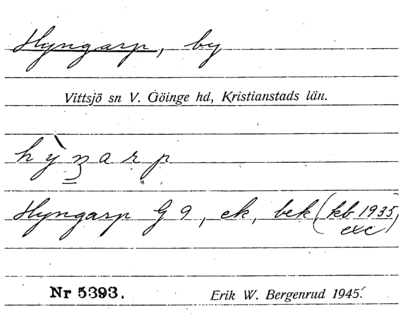 Hyngarp, by
Vittsjö sn V. Göinge hd, Kristianstads län.
hỳŋarp
Hyngarp G 9, ek, bek (kb 1935,
exc)
Nr 5393. Erik W. Bergenrud 1945.